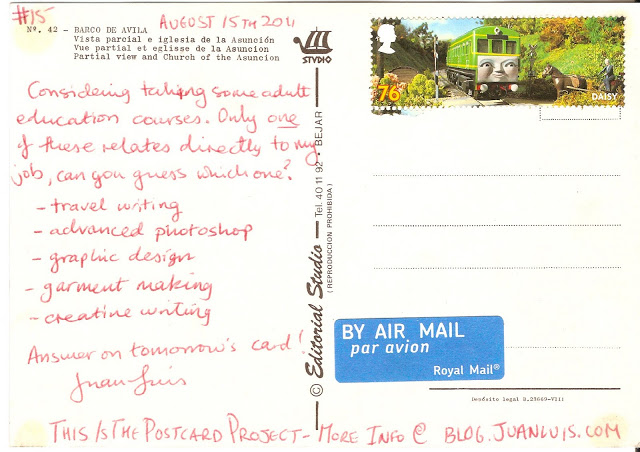 #15-
AUGUST 15TH 2011
Nº. 42 - BARCO DE AVILA
Vista parcial e iglesia de la Asunción
Vue partial et eglisse de la Asuncion
Partial view and Church of the Asuncion
STVDIO
76
DAISY
Considering taking some adult
education courses. Only one
of these relates directly to my
job, can you guess which one?
- travel writing
- advanced photoshop
- graphic design
- garment making
- creative writing
Answer on tomorrow's card!
Juan Luis
© Editorial Studio — Tel. 40 11 92 - BEJAR
(REPRODUCCION PROHIBIDA)
BY AIR MAIL
par avion
Royal Mail®
Depósito legal B.23669-VIII
THIS IS THE POSTCARD PROJECT - MORE INFO @ BLOG.JUANLUIS.COM